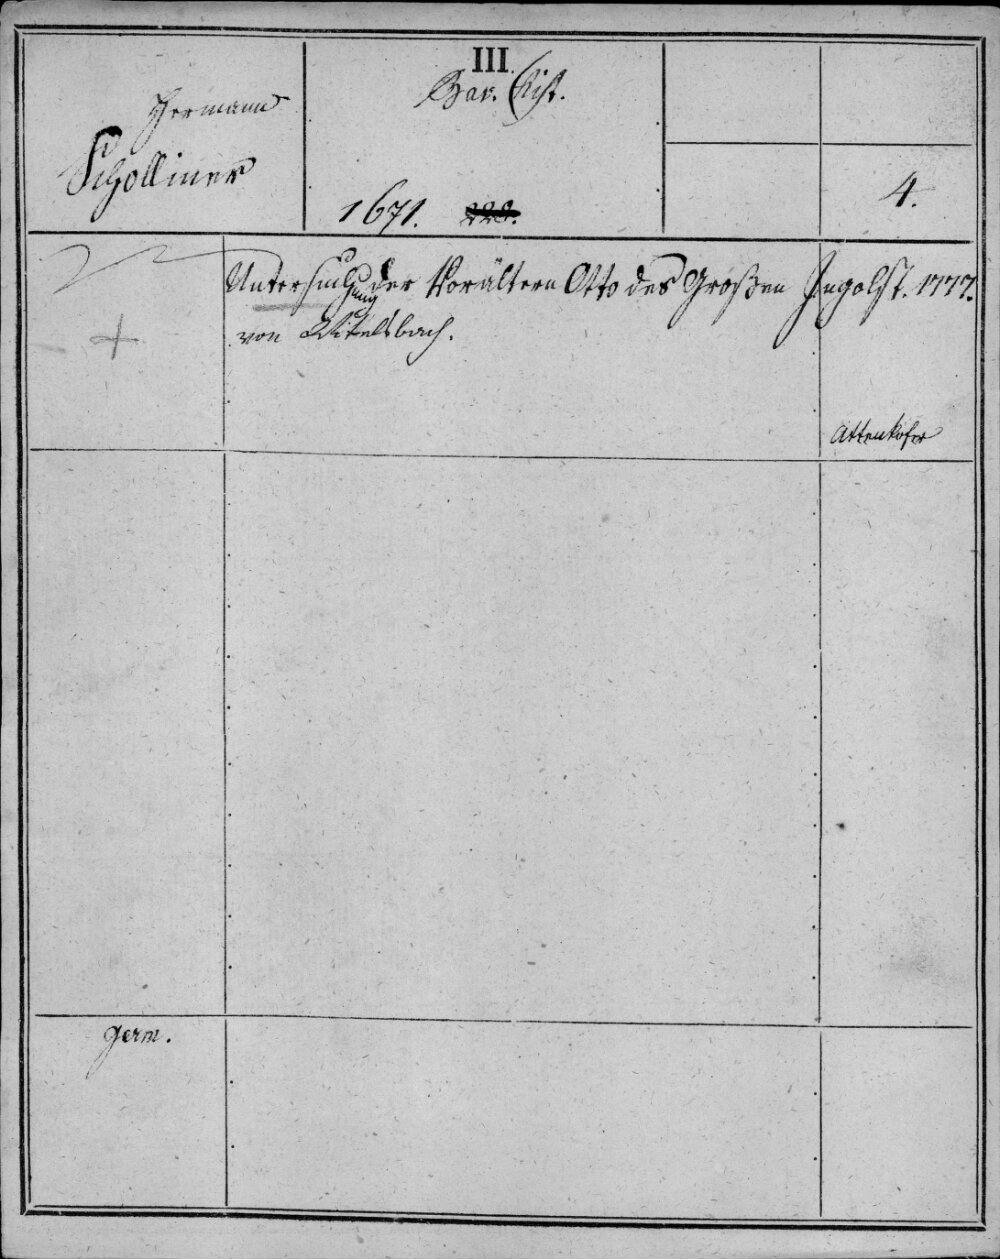 III.
Bav. Hist.
Hermann
Scholliner
1671. 228.
4.
Untersuchung der Vorältern Otto des Großen
von Witelsbach.
Ingolst. 1777.
Attenkofer
germ.